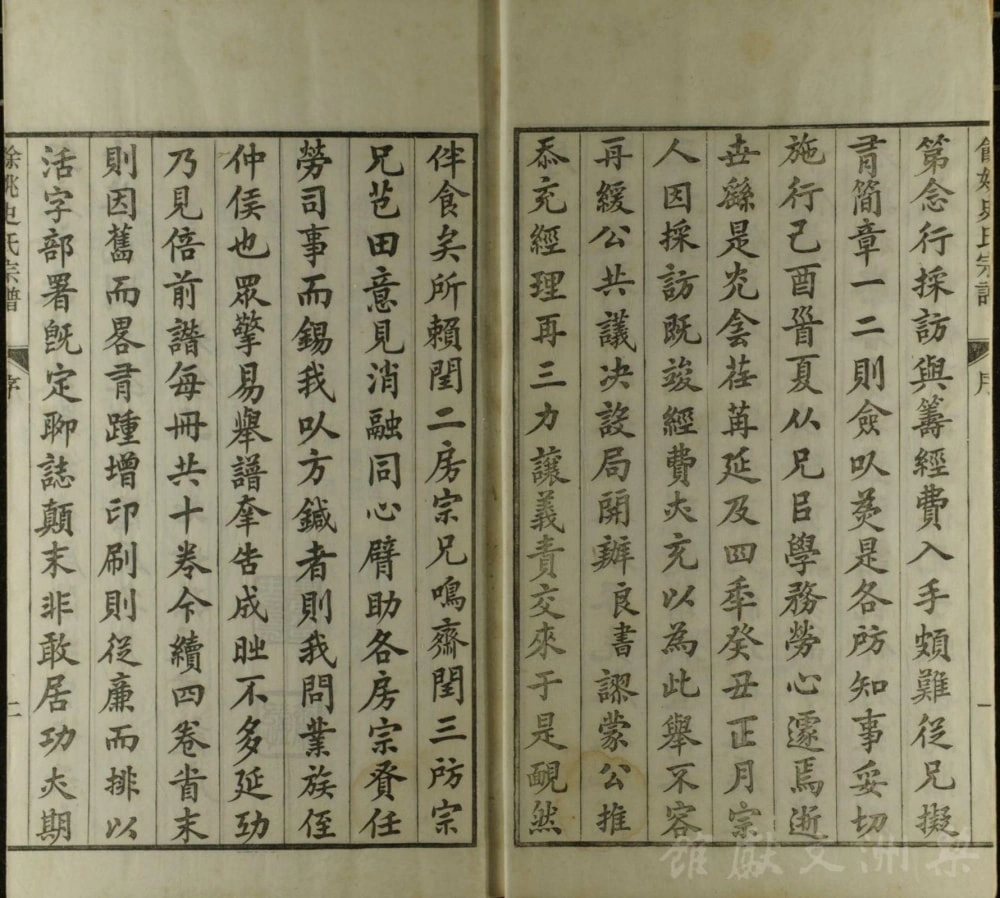 第念行採訪與籌經費入手頗難從兄擬
有簡章一二則僉以為是各房知事妥切
施行己酉首夏从兄吕學務勞心遽焉逝
世繇是允會荏苒延及四年癸丑正月宗
人因採訪既竣經費尖充以為此舉不容
再緩公共議決設局開辦良書謬蒙公推
忝充經理再三力讓義責交來于是靦然
伴食矣所賴閏二房宗兄鳴齋閏三房宗
兄芑田意見消融同心臂助各房宗賚任
勞司事而錫我以方鍼者則我問業族侄
仲侯也眾擎易舉譜牽告成𣅜不多延功
乃見倍前譜每冊共十卷今續四卷首末
則因舊而畧有踵增印刷則從廉而排以
活字部署旣定聊誌顛末非敢居功尖期
餘姚史氏宗譜
序
一
餘姚史氏宗譜
序
二
梨洲文獻館